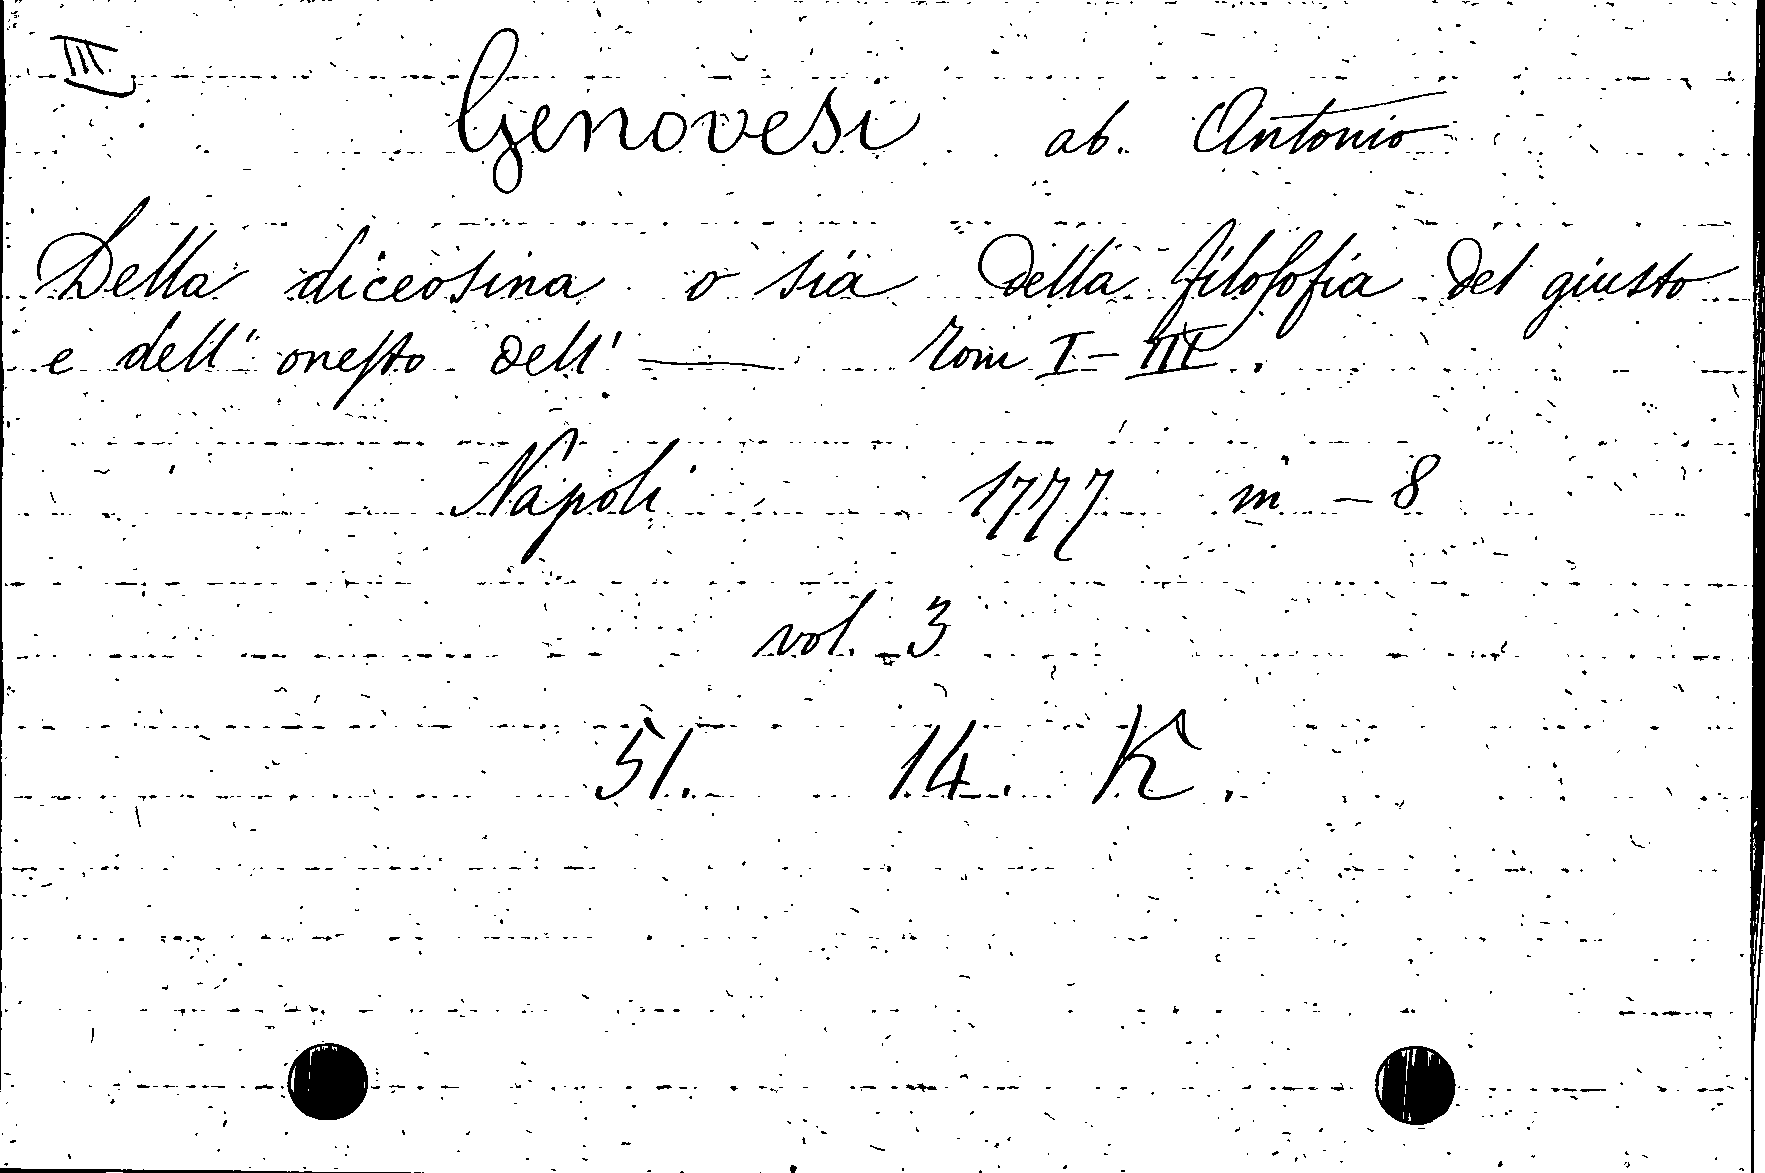 III.
Genovesi ab. Antonio
Della diceosina o sia della filosofia del giusto
e dell' onesto dell' — Tom I – III.
Napoli 1777 in – 8
vol. 3
51. 14. K.